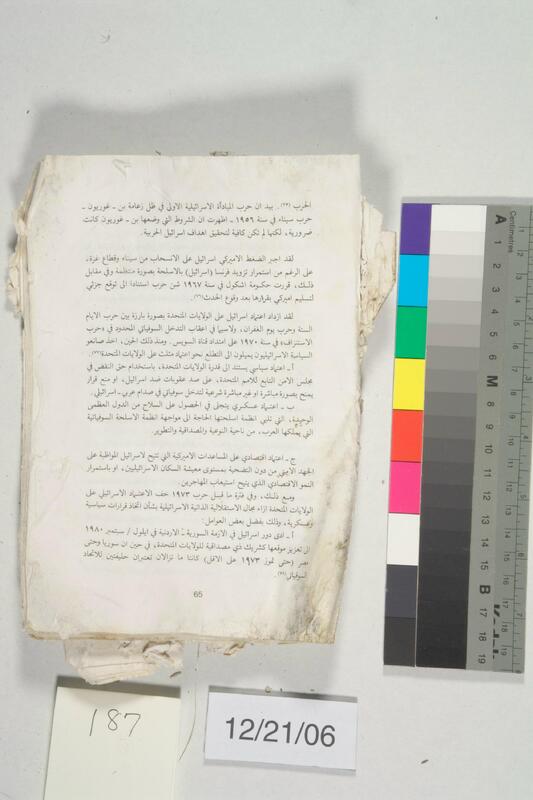 الحرب (٢٣). بيد ان حرب المبادأة الاسرائيلية الاولى في ظل زعامة بن ـ غوريون ـ
حرب سيناء في سنة ١٩٥٦ ـ اظهرت ان الشروط التي وضعها بن ـ غوريون كانت
ضرورية، لكنها لم تكن كافية لتحقيق اهداف اسرائيل الحربية.
لقد اجبر الضغط الاميركي اسرائيل على الانسحاب من سيناء وقطاع غزة،
على الرغم من استمرار تزويد فرنسا (اسرائيل) بالاسلحة بصورة منتظمة وفي مقابل
ذلك، قررت حكومة اشكول في سنة ١٩٦٧ شن حرب استناداً الى توقع جزئي
لتسليم اميركي بقرارها بعد وقوع الحدث
لقد ازداد اعتماد اسرائيل على الولايات المتحدة بصورة بارزة بين حرب الايام
الستة وحرب يوم الغفران، ولاسيما في اعقاب التدخل السوفياتي المحدود في «حرب
الاستنزاف» في سنة ١٩٧٠ على امتداد قناة السويس. ومنذ ذلك الحين، اخذ صانعو
السياسة الاسرائيليون يميلون الى التطلع نحو اعتماد مثلث على الولايات المتحدة
أ ـ اعتماد سياسي يستند الى قدرة الولايات المتحدة، باستخدام حق النقض في
مجلس الامن التابع للامم المتحدة، على صد عقوبات ضد اسرائيل، او منع قرار
يمنح بصورة مباشرة او غير مباشرة شرعية لتدخل سوفياتي في صدام عربي ـ اسرائيلي.
ب ـ اعتماد عسكري يتجلى في الحصول على السلاح من الدول العظمى
الوحيدة، التي تلبي انظمة اسلحتها الحاجة الى مواجهة انظمة الاسلحة السوفياتية
التي يملكها العرب، من ناحية النوعية والمصداقية والتطوير.
ج ـ اعتماد اقتصادي على المساعدات الاميركية التي تتيح لاسرائيل المواظبة على
الجهد الامني من دون التضحية بمستوى معيشة السكان الاسرائيليين، او باستمرار
النمو الاقتصادي الذي يتيح استيعاب المهاجرين.
ومع ذلك، وفي فترة ما قبل حرب ١٩٧٣ خف الاعتماد الاسرائيلي على
الولايات المتحدة ازاء مجال الاستقلالية الذاتية الاسرائيلية بشأن اتخاذ قرارات سياسية
وعسكرية، وذلك بفضل بعض العوامل:
أ ـ ادى دور اسرائيل في الازمة السورية ـ الاردنية في ايلول / سبتمبر ١٩٨٠
الى تعزيز موقعها كشريك ذي مصداقية للولايات المتحدة، في حين ان سوريا وحتى
مصر (حتى تموز ١٩٧٣ على الاقل) كانتا ما تزالان تعتبران حليفتين للاتحاد
السوفياتي
65
187
12/21/06
Centimetres
A
M
B
1
2
3
4
5
6
7
8
9
10
11
12
13
14
15
16
17
18
19